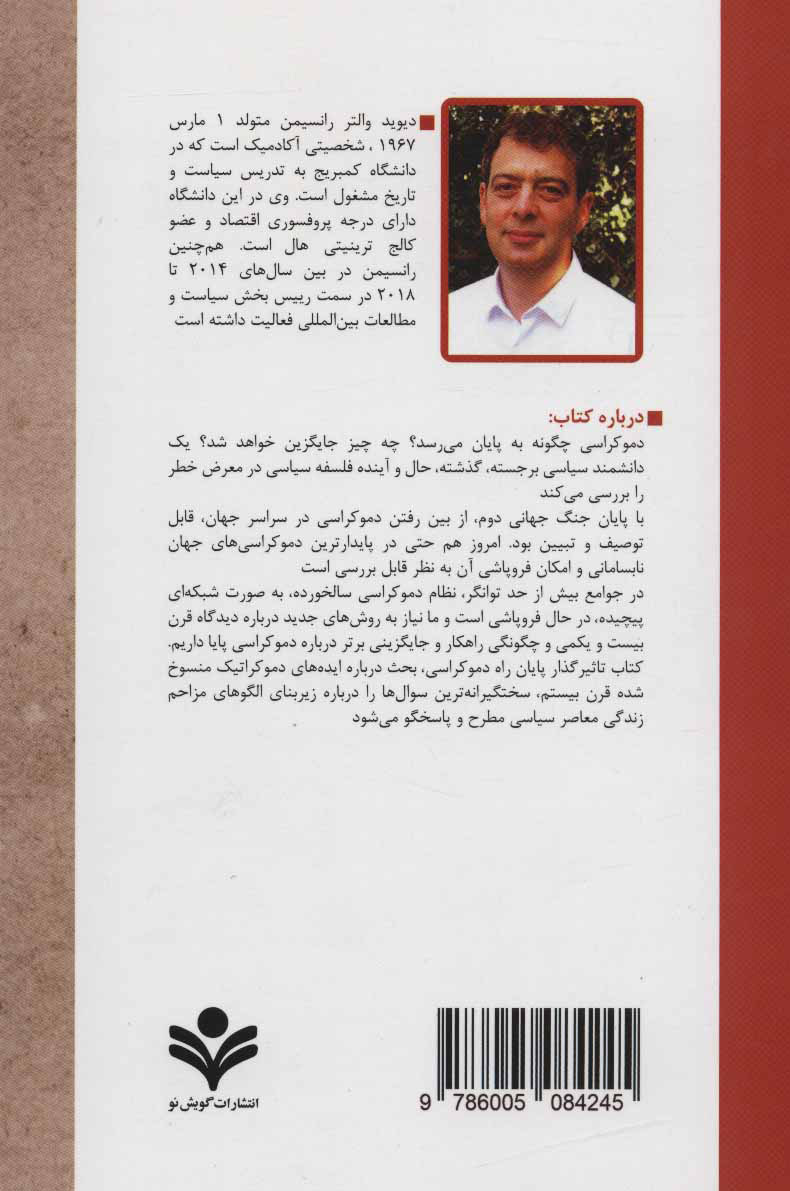 دیوید والتر رانسیمن متولد ۱ مارس
۱۹۶۷ ، شخصیتی آکادمیک است که در
دانشگاه کمبریج به تدریس سیاست و
تاریخ مشغول است. وی در این دانشگاه
دارای درجه پروفسوری اقتصاد و عضو
کالج ترینیتی هال است. هم‌چنین
رانسیمن در بین سال‌های ۲۰۱۴ تا
۲۰۱۸ در سمت رییس بخش سیاست و
مطالعات بین‌المللی فعالیت داشته است
درباره کتاب:
دموکراسی چگونه به پایان می‌رسد؟ چه چیز جایگزین خواهد شد؟ یک
دانشمند سیاسی برجسته، گذشته، حال و آینده فلسفه سیاسی در معرض خطر
را بررسی می‌کند
با پایان جنگ جهانی دوم، از بین رفتن دموکراسی در سراسر جهان، قابل
توصیف و تبیین بود. امروز هم حتی در پایدارترین دموکراسی‌های جهان
نابسامانی و امکان فروپاشی آن به نظر قابل بررسی است
در جوامع بیش از حد توانگر، نظام دموکراسی سالخورده، به صورت شبکه‌ای
پیچیده، در حال فروپاشی است و ما نیاز به روش‌های جدید درباره دیدگاه قرن
بیست و یکمی و چگونگی راهکار و جایگزینی برتر درباره دموکراسی پایا داریم.
کتاب تاثیرگذار پایان راه دموکراسی، بحث درباره ایده‌های دموکراتیک منسوخ
شده قرن بیستم، سختگیرانه‌ترین سوال‌ها را درباره زیربنای الگوهای مزاحم
زندگی معاصر سیاسی مطرح و پاسخگو می‌شود
انتشارات گویش نو
9 786005 084245